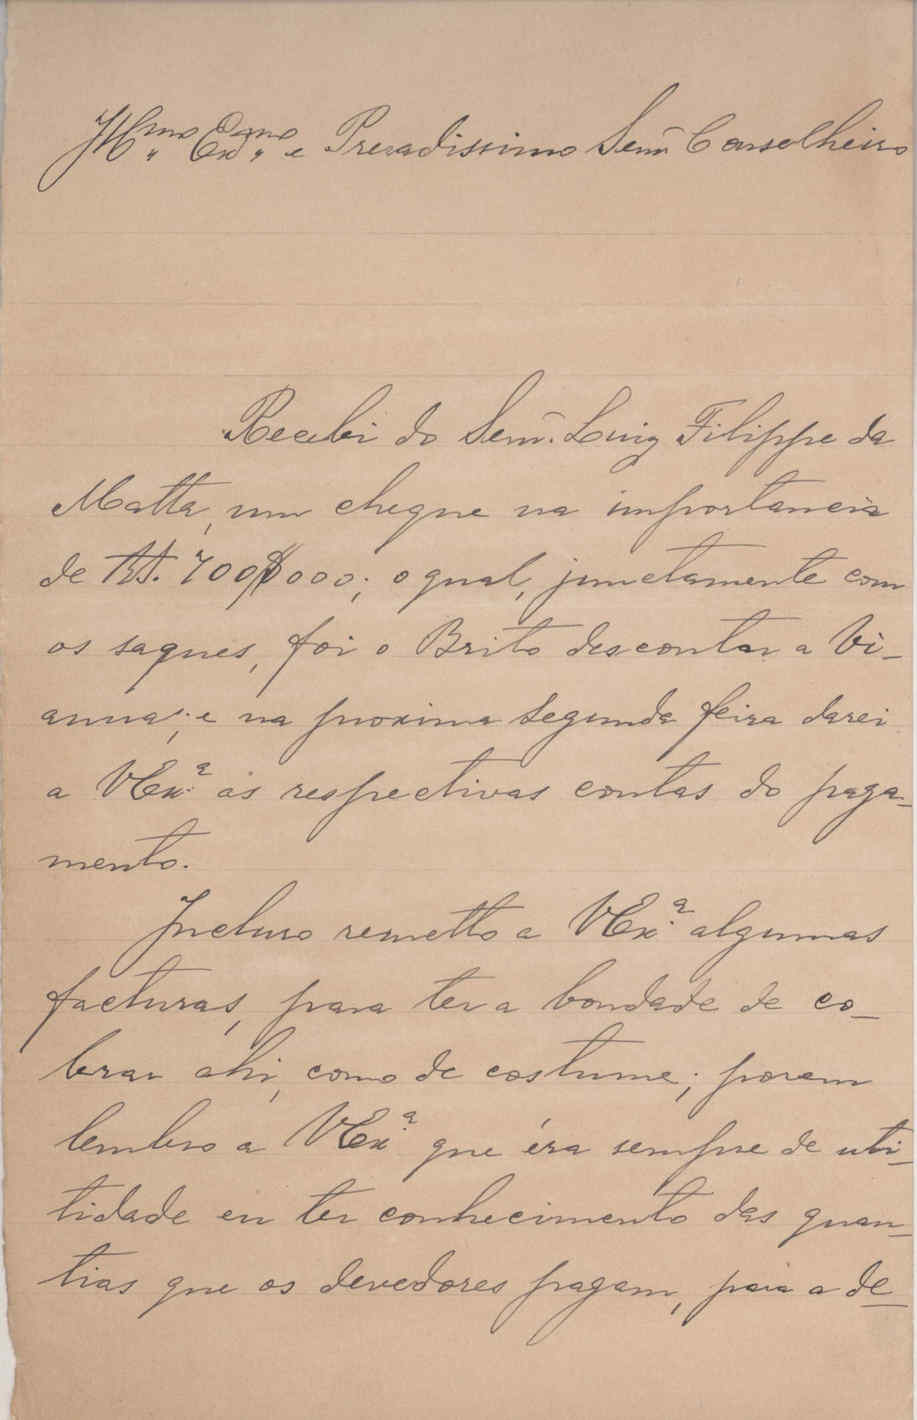 Illmo Exmo e Presadissimo Senr Conselheiro
Recebi do Senr. Luiz Filippe da
Matta, um cheque na importancia
de Rs. 700$000; o qual, junctamente com
os saques, foi o Brito descontar a Vi-
anna; e na proxima segunda feira darei
a VExa as respectivas contas do paga-
mento.
Incluso remetto a VExa algumas
facturas, para ter a bondade de co-
brar ahi, como de costume; porem
lembro a VExa que éra sempre de uti-
lidade eu ter conhecimento das quan-
tias que os devedores pagam, para a de-